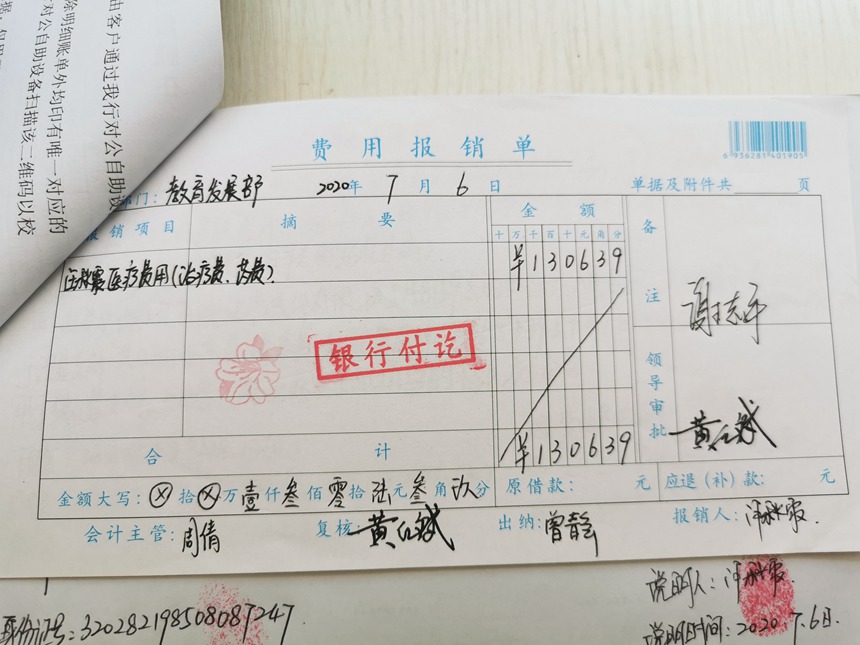 由客户通过我行对公自助设
除明细账单外均印有唯一对应的
对公自助设备扫描该二维码以校
费用报销单
6 936281 401905
部门：教育发展部 2020年 7月 6日 单据及附件共 页
报销项目 摘要 金额 备注
十万千百十元角分
医疗费用（治疗费、药费）． ¥130639
谢志平
银行付讫
领导审批
合计 ¥130639
金额大写：ⓧ拾ⓧ万壹仟叁佰零拾陆元叁角玖分 原借款： 元 应退（补）款： 元
会计主管：周倩 复核： 出纳：曾静 报销人：
说明人：
身份证号：320282198508087247
说明时间：2020.7.6日.